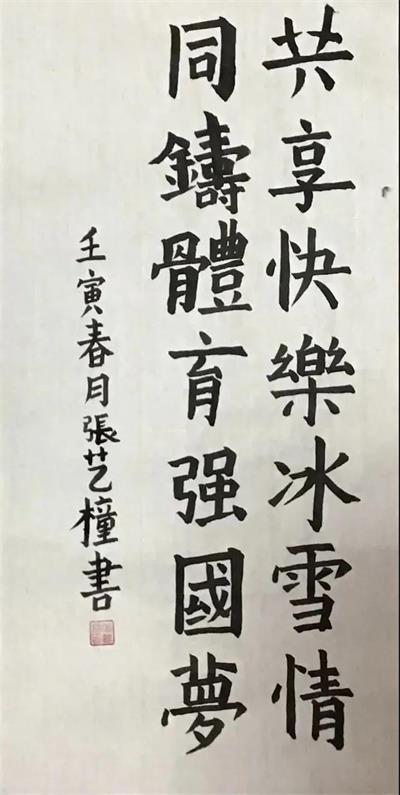 共享快樂冰雪情
同鑄體育强國夢
壬寅春月張艺橦書